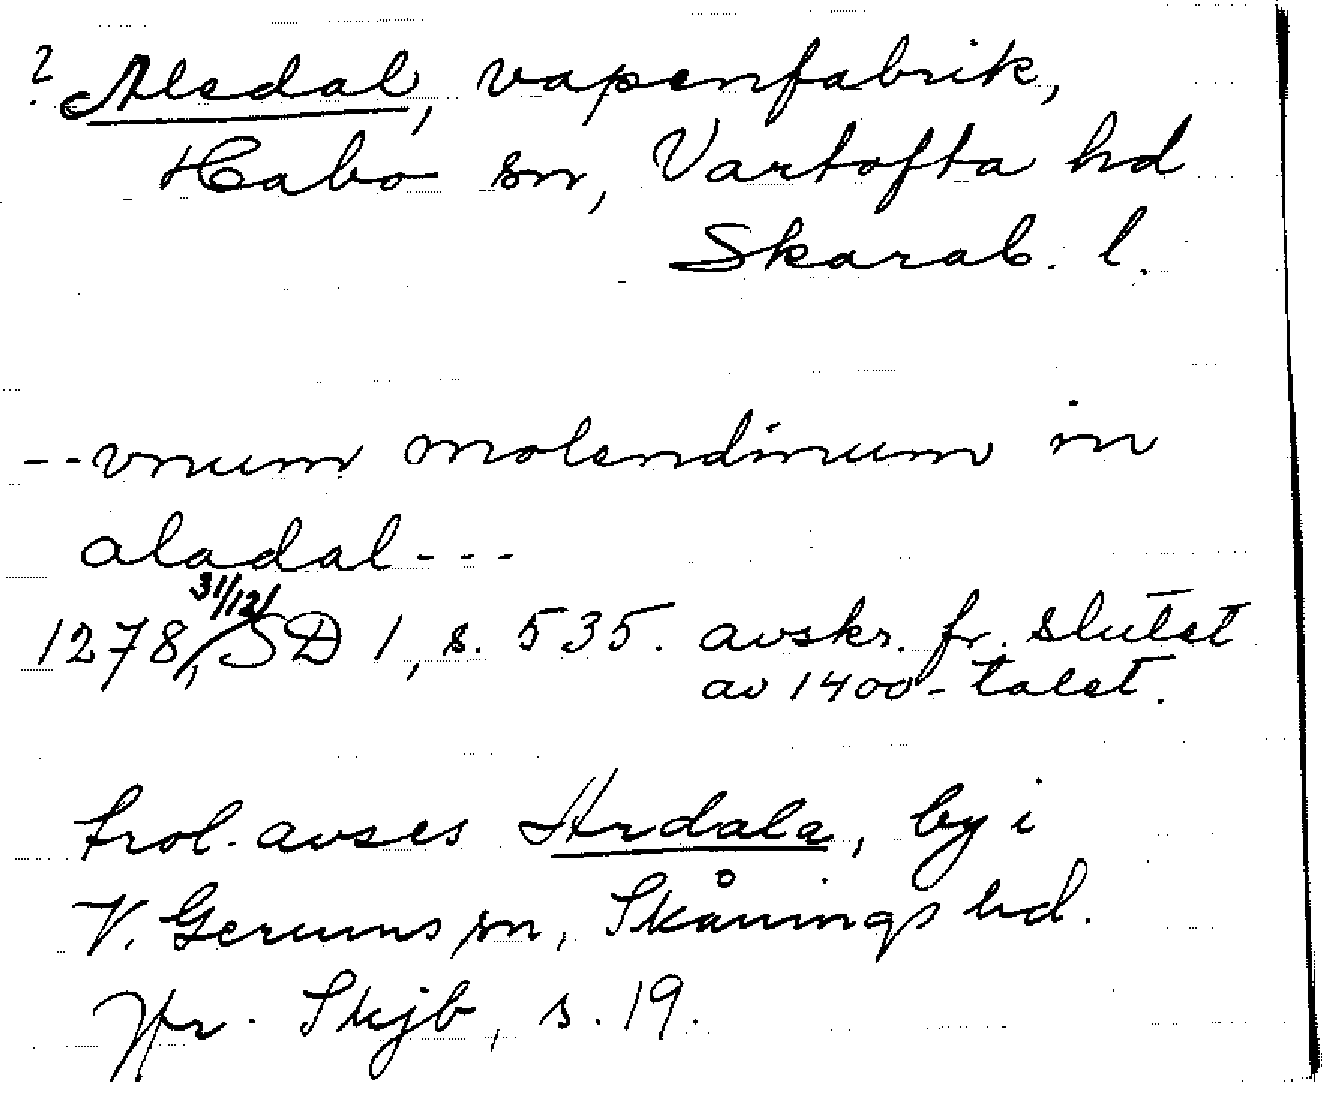 ? Alsdal, vapenfabrik,
Habo sn, Vartofta hd
Skarab. l.
--vnum molendinum in
aladal---
1278 31/12, SD 1, s. 535. avskr. fr. slutet
av 1400-talet.
trol. avses Härdala, by i
V. Gerums sn, Skånings hd.
Jfr. Skjb, s. 19.